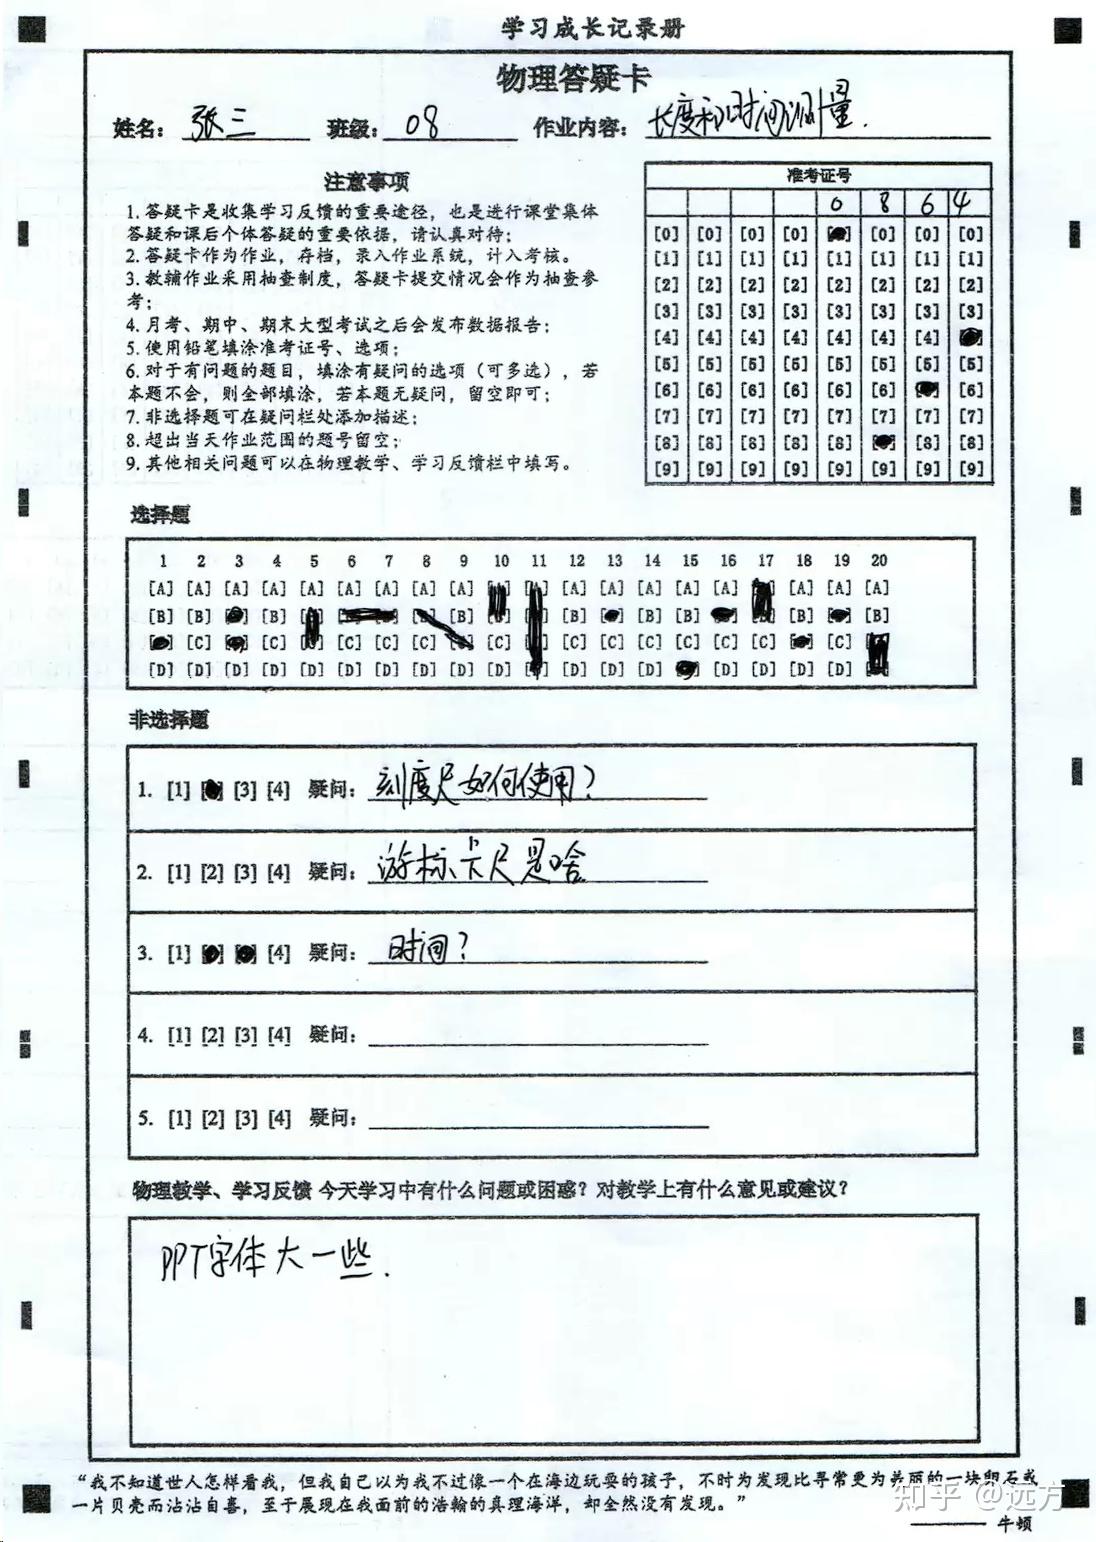 学习成长记录册
物理答疑卡
姓名：张三 班级：08 作业内容：长度和时间测量.
注意事项
1.答疑卡是收集学习反馈的重要途径，也是进行课堂集体
答疑和课后个体答疑的重要依据，请认真对待；
2.答疑卡作为作业，存档，录入作业系统，计入考核。
3.教辅作业采用抽查制度，答疑卡提交情况会作为抽查参
考；
4.月考、期中、期末大型考试之后会发布数据报告；
5.使用铅笔填涂准考证号、选项；
6.对于有问题的题目，填涂有疑问的选项（可多选），若
本题不会，则全部填涂，若本题无疑问，留空即可；
7.非选择题可在疑问栏处添加描述；
8.超出当天作业范围的题号留空；
9.其他相关问题可以在物理教学、学习反馈栏中填写。
准考证号
0 8 6 4
[0] [0] [0] [0] [0] [0] [0]
[1] [1] [1] [1] [1] [1] [1] [1]
[2] [2] [2] [2] [2] [2] [2] [2]
[3] [3] [3] [3] [3] [3] [3] [3]
[4] [4] [4] [4] [4] [4] [4]
[5] [5] [5] [5] [5] [5] [5] [5]
[6] [6] [6] [6] [6] [6] [6]
[7] [7] [7] [7] [7] [7] [7] [7]
[8] [8] [8] [8] [8] [8] [8]
[9] [9] [9] [9] [9] [9] [9] [9]
选择题
1 2 3 4 5 6 7 8 9 10 11 12 13 14 15 16 17 18 19 20
[A] [A] [A] [A] [A] [A] [A] [A] [A] [A] [A] [A] [A] [A] [A] [A] [A] [A]
[B] [B] [B] [B] [B] [B] [B] [B]
[C] [C] [C] [C] [C] [C] [C] [C] [C] [C] [C] [C] [C] [C]
[D] [D] [D] [D] [D] [D] [D] [D] [D] [D] [D] [D] [D] [D] [D] [D] [D]
非选择题
1. [1] [3] [4] 疑问：刻度尺如何使用？
2. [1] [2] [3] [4] 疑问：游标卡尺是啥
3. [1] [4] 疑问：时间？
4. [1] [2] [3] [4] 疑问：
5. [1] [2] [3] [4] 疑问：
物理教学、学习反馈 今天学习中有什么问题或困惑？对教学上有什么意见或建议？
PPT字体大一些.
“我不知道世人怎样看我，但我自己以为我不过像一个在海边玩耍的孩子，不时为发现比寻常更为美丽的一块卵石或
一片贝壳而沾沾自喜，至于展现在我面前的浩瀚的真理海洋，却全然没有发现。”
——— 牛顿
知乎 @远方